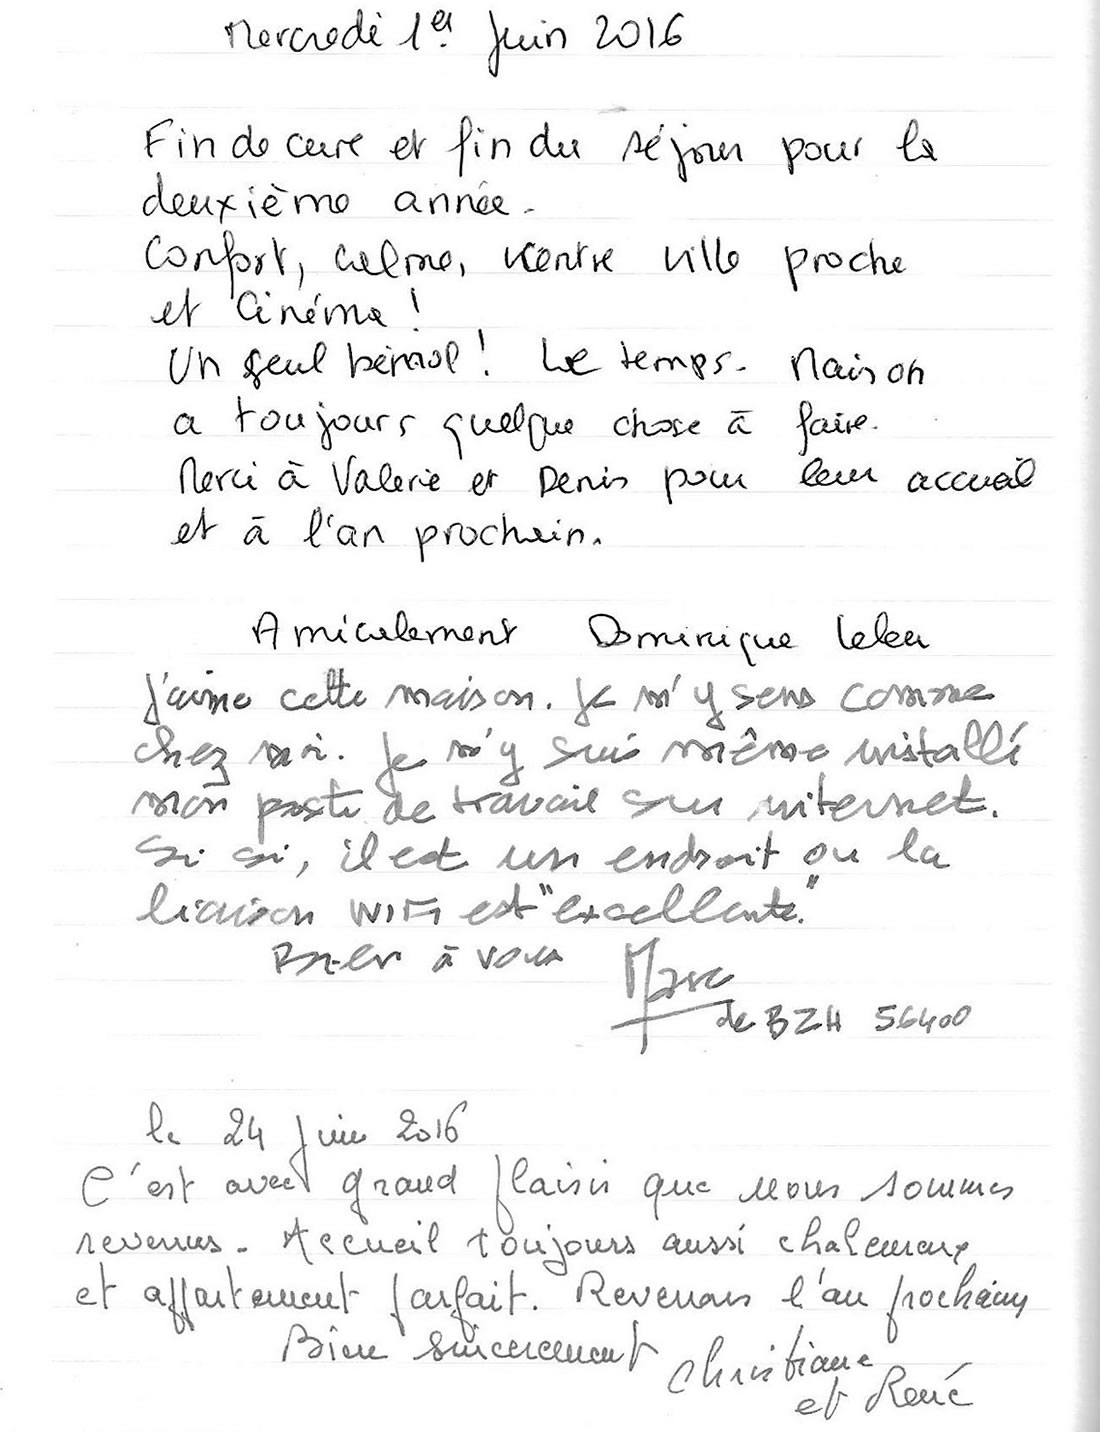 Mercredi 1er Juin 2016
Fin de cure et fin du séjour pour la
deuxième année.
Confort, calme, centre ville proche
et Cinéma !
Un seul bémol ! Le temps. Maison
a toujours quelque chose à faire.
Merci à Valérie et Denis pour leur accueil
et à l'an prochain.
Amicalement Dominique Leleu
J'aime cette maison. Je m'y sens comme
chez moi. Je m'y suis même installé
mon poste de travail sur internet.
Si si, il est un endroit ou la
liaison WIFI est "excellente."
à vous Marc
de BZH 56400
le 24 Juin 2016
C'est avec grand plaisir que nous sommes
revenus. Accueil toujours aussi chaleureux
et appartement parfait. Revenons l'an prochain
Bien sincèrement Christiane
et René